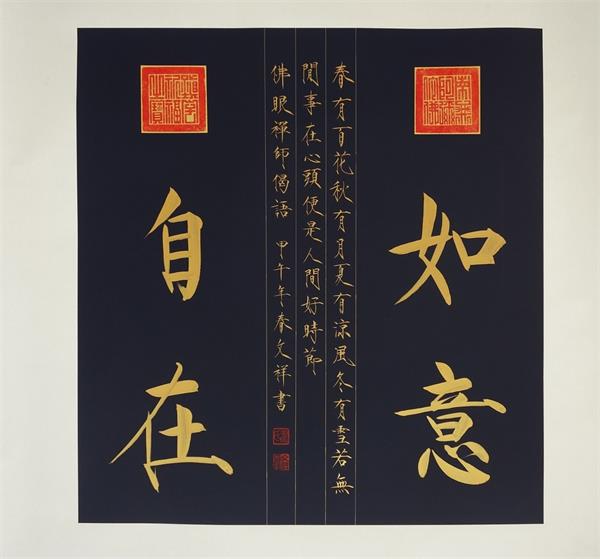 如意
春有百花秋有月夏有涼風冬有雪若無
閒事在心頭便是人間好時節
佛眼禪師偈語 甲午年春文祥書
自在